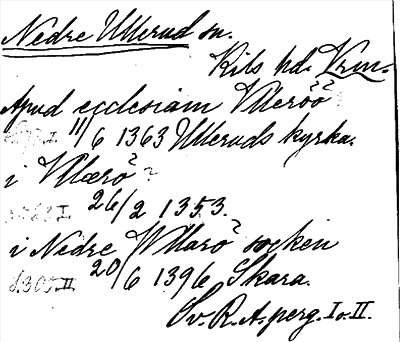 Nedre Ullerud sn.
Kils hd. Vrm.
Apud ecclesiam Vlleröö
11/6 1363 Ulleruds kyrka.
i Vllærö
26/2 1353.
i Nedre Wllarö socken
d. 305. II. 20/6 1396 Skara.
Sv. R. A. perg. I o. II.